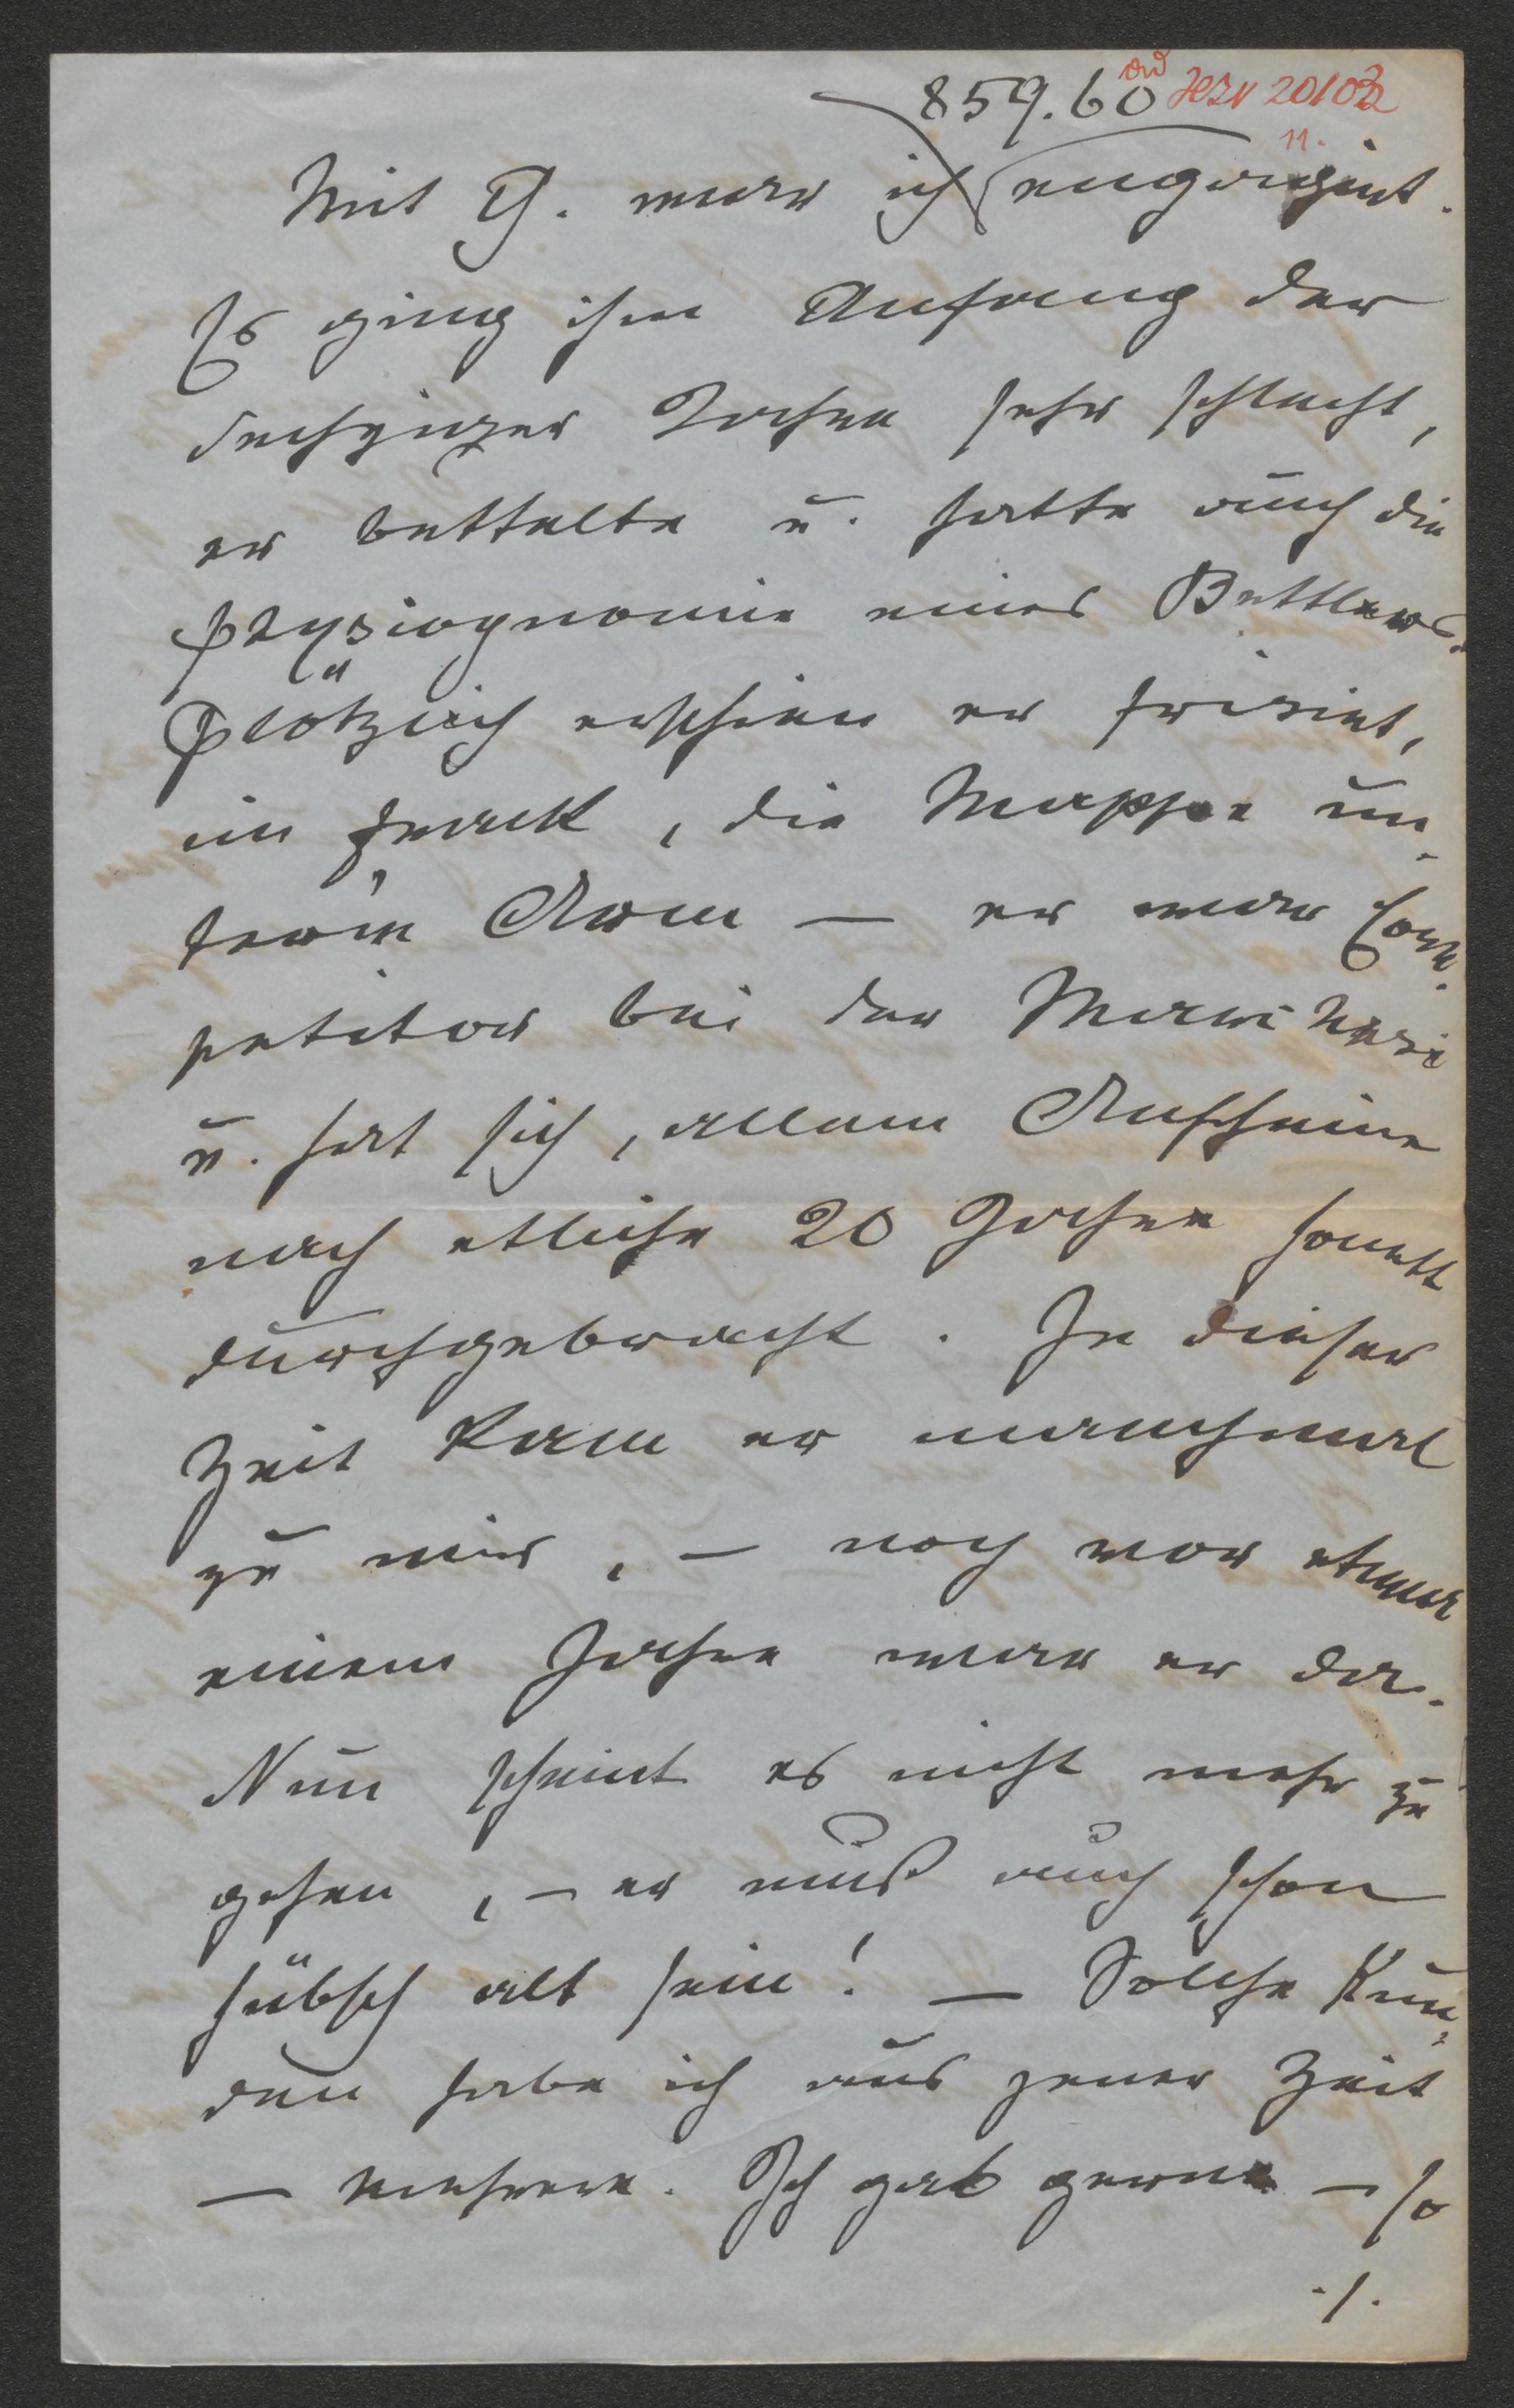 859.60 HIN 20103
11.
Mit G. war ich engagirt.
Es ging ihm Anfang der
sechziger Jahre sehr schlecht,
er bettelte u. hatte auch die
Physiognomie eines Bettlers.
Plötzlich erschien er frisirt,
im Frack, die Mappe un-
term Arm — er war Com-
petitor bei der
u. hat sich, allem Anscheine
nach etliche 20 Jahre honett
durchgebracht. In dieser
Zeit kam er manchmal
zu mir, — noch vor etwa
einem Jahre war er da.
Nun scheint es nicht mehr zu
gehen, — er muß auch schon
hübsch alt sein! — Solche Kun-
den habe ich aus jener Zeit
— mehrere. Ich gab gerne — so
./.